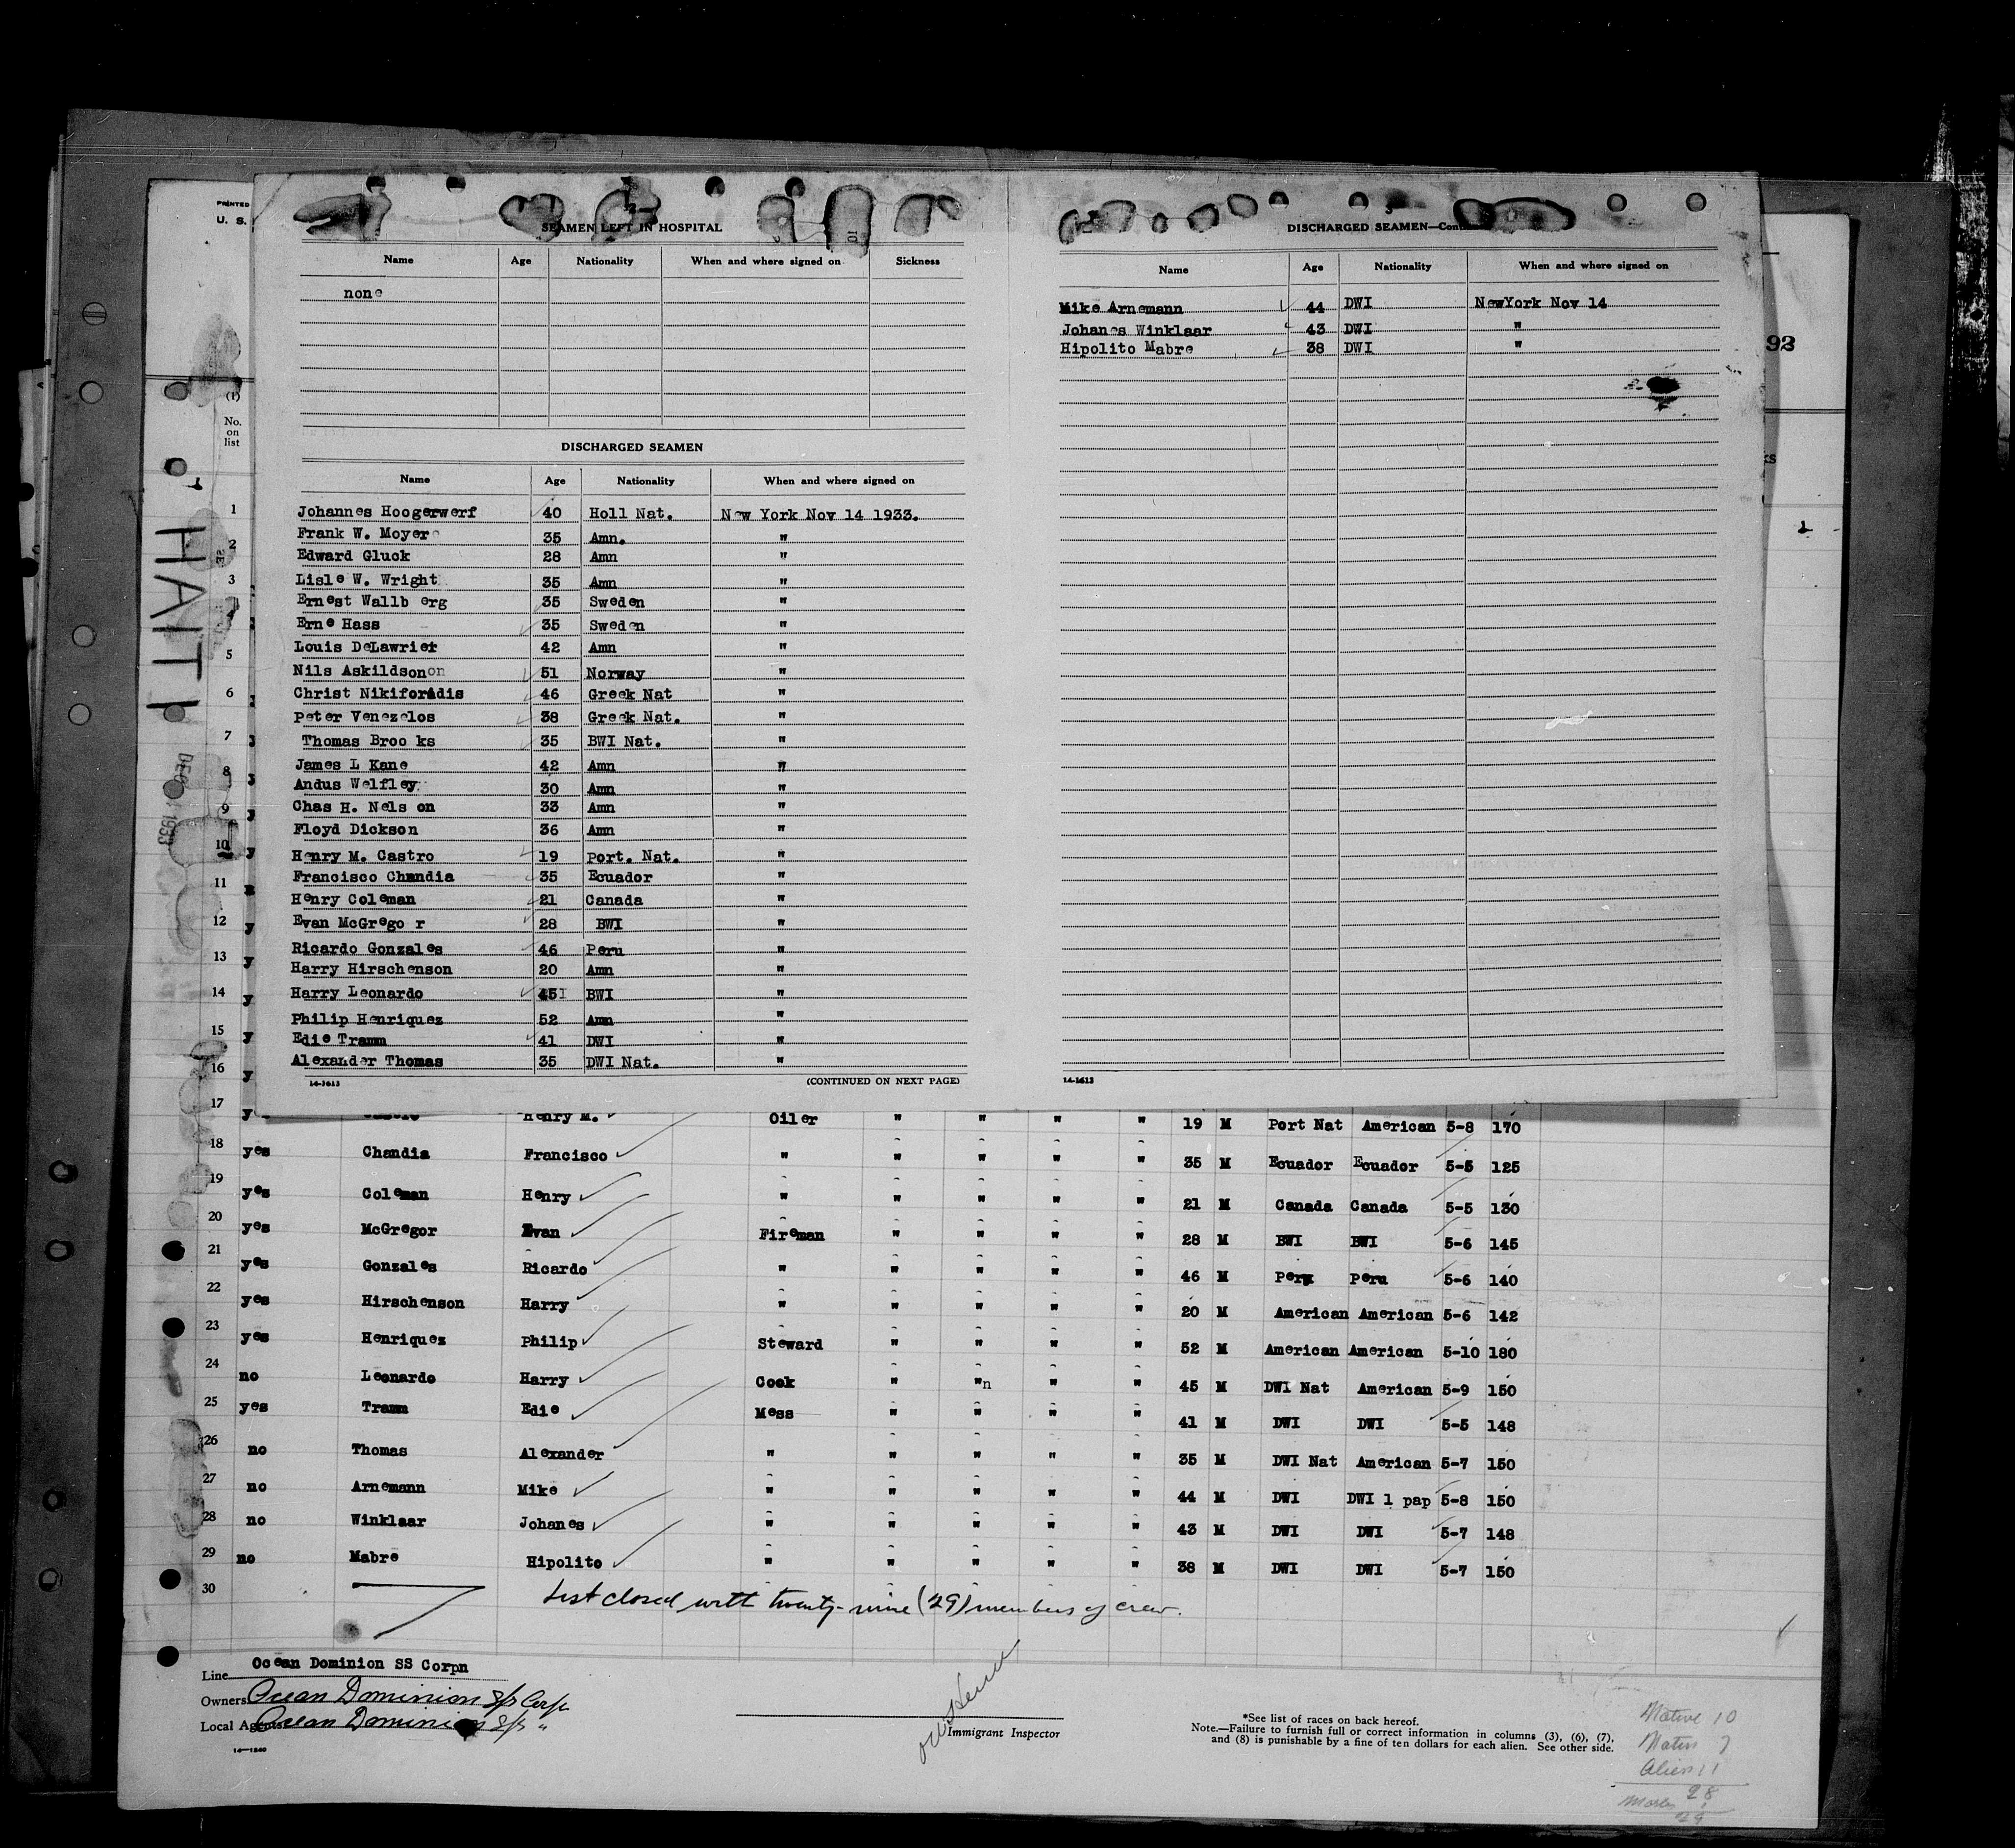 PRINTED
U. S.
(1)
No.
on
list
HAITI
DEC 1 1933
SEAMEN LEFT IN HOSPITAL
Name Age Nationality When and where signed on Sickness
none
DISCHARGED SEAMEN
Name Age Nationality When and where signed on
Johannes Hoogerwerf 40 Holl Nat. New York Nov 14 1933.
Frank W. Moyer 35 Amn. "
Edward Gluck 28 Amn "
Lisle W. Wright 35 Amn "
Ernest Wallb erg 35 Sweden "
Erne Hass 35 Sweden "
Louis DeLawrier 42 Amn "
Nils Askildsonon 51 Norway "
Christ Nikiforidis 46 Greek Nat "
Peter Venezelos 38 Greek Nat. "
Thomas Broo ks 35 BWI Nat. "
James L Kane 42 Amn "
Andus Welfley 30 Amn "
Chas H. Nels on 33 Amn "
Floyd Dickson 36 Amn "
Henry M. Castro 19 Port. Nat. "
Francisco Chandia 35 Ecuador "
Henry Coleman 21 Canada "
Evan McGrego r 28 BWI "
Ricardo Gonzales 46 Peru "
Harry Hirschenson 20 Amn "
Harry Leonardo 45 BWI "
Philip Henriquez 52 Amn "
Edie Tramm 41 DWI "
Alexander Thomas 35 DWI Nat. "
14-1613 (CONTINUED ON NEXT PAGE)
3
DISCHARGED SEAMEN—
Name Age Nationality When and where signed on
Mike Arnemann 44 DWI NewYork Nov 14
Johanes Winklaar 43 DWI "
Hipolito Mabre 38 DWI "
14-1613
1
2
3
4
5
6
7
8
9
10
11
12
13
14
15
16
17 Henry M. Oiler " " " " 19 M Port Nat American 5-8 170
18 yes Chandia Francisco " " " " " 35 M Ecuador Ecuador 5-5 125
19 yes Coleman Henry " " " " " 21 M Canada Canada 5-5 130
20 yes McGregor Evan Fireman " " " " 28 M BWI BWI 5-6 145
21 yes Gonzales Ricardo " " " " " 46 M Peru Peru 5-6 140
22 yes Hirschenson Harry " " " " " 20 M American American 5-6 142
23 yes Henriquez Philip Steward " " " " 52 M American American 5-10 180
24 no Leonardo Harry Cook " "n " " 45 M DWI Nat American 5-9 150
25 yes Tramm Edie Mess " " " " 41 M DWI DWI 5-5 148
26 no Thomas Alexander " " " " " 35 M DWI Nat American 5-7 150
27 no Arnemann Mike " " " " " 44 M DWI DWI 1 pap 5-8 150
28 no Winklaar Johanes " " " " " 43 M DWI DWI 5-7 148
29 no Mabre Hipolito " " " " " 38 M DWI DWI 5-7 150
30 List closed with twenty-nine (29) members of crew.
Line Ocean Dominion SS Corpn
Owners Ocean Dominion S/S Corp
Local Agents Ocean Dominion S/S "
Immigrant Inspector
*See list of races on back hereof.
Note.—Failure to furnish full or correct information in columns (3), (6), (7),
and (8) is punishable by a fine of ten dollars for each alien. See other side.
Native 10
Alien 11
28
29